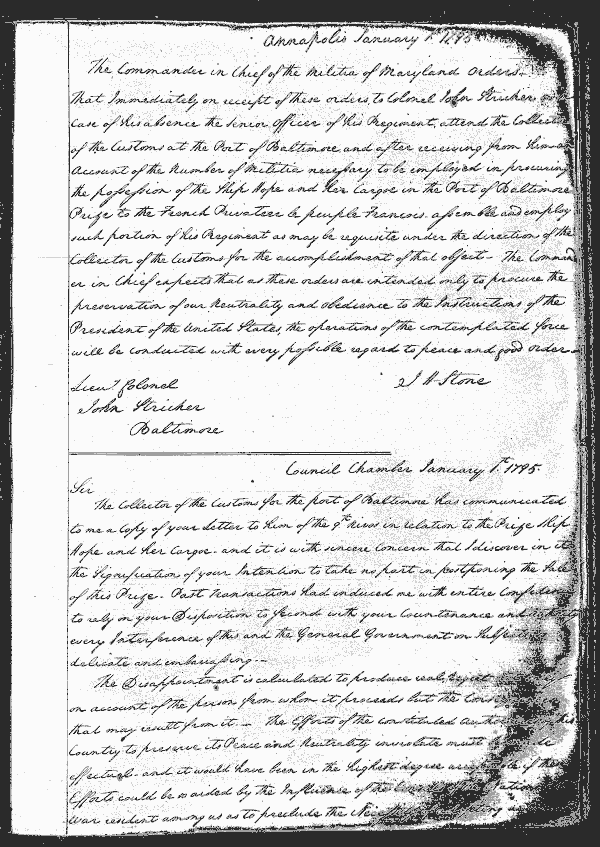 Annapolis January 1st 1795
The Commander in Chief of the Militia of Maryland Orders.
That Immediately on receipt of these orders, to Colonel John Stricker or in
Case of his absence the Senior Officer of his Regiment, attend the Collector
of the Customs at the Port of Baltimore, and after receiving from him an
Account of the Number of Militia necessary to be employed in procuring
the possession of the Ship Hope and Her Cargoe in the Port of Baltimore
Prize to the French Privateer le peuple Francois. assemble and employ
such portion of his Regiment as may be requisite under the direction of the
Collector of the Customs for the accomplishment of that object - The Command
er in Chief expects that as these orders are intended only to procure the
preservation of our Neutrality and obedience to the Instructions of the
President of the United States, the operations of the contemplated force
will be conducted with every possible regard to peace and good order -
Lieut Colonel J H Stone
John Stricker
Baltimore
Council Chamber January 1st 1795.
Sir
The Collector of the Customs for the port of Baltimore has communicated
to me a Copy of your Letter to him of the in relation to the Prize Ship
Hope and Her Cargoe. and it is with sincere Concern that I discover in it
the Signification of your Intention to take no part in postponing the Sale
of this Prize. Past Transactions had induced me with entire Confidence
to rely on your Disposition to second with your Countenance and
every Interference of this and the General Government on Subjects
delicate and embarrassing --
The Disappointment is calculated to produce real regret
on account of the person from whom it proceeds but the
that may result from it - The Efforts of the constituted
Country to preserve its Peace and Neutrality inviolate must
effectual. and it would have been in the highest degree if the
Efforts could be aided by the Influence of the
War resident among us as to preclude the